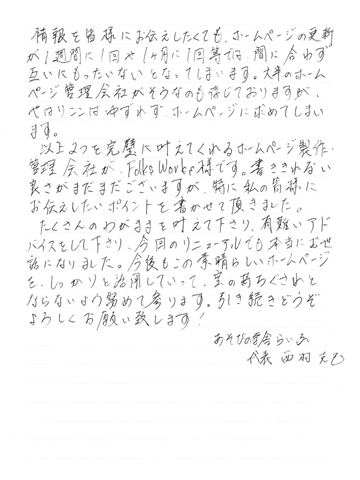 情報を皆様にお伝えしたくても、ホームページの更新
が1週間に1回や1ヶ月に1回等では、間に合わず
互いにもったいないとなってしまいます。大半のホーム
ページ管理会社がそうなのも存じておりますが、
やはりここはゆずれず ホームページに求めてしまい
ます。
以上2つを完璧に叶えてくれるホームページ製作・
管理会社が、Folks Works様です。書ききれない
良さがまだまだございますが、特に私の皆様に
お伝えしたいポイントを書かせて頂きました。
たくさんのわがままを叶えて下さり、有難いアド
バイスをして下さり、今回のリニューアルでも本当にお世
話になりました。今後もこの素晴らしいホームページ
を、しっかりと活用していって、宝の持ちぐされと
ならないよう努めて参ります。引き続きどうぞ
よろしくお願い致します!
あそびの学舎らいふ
代表 西村